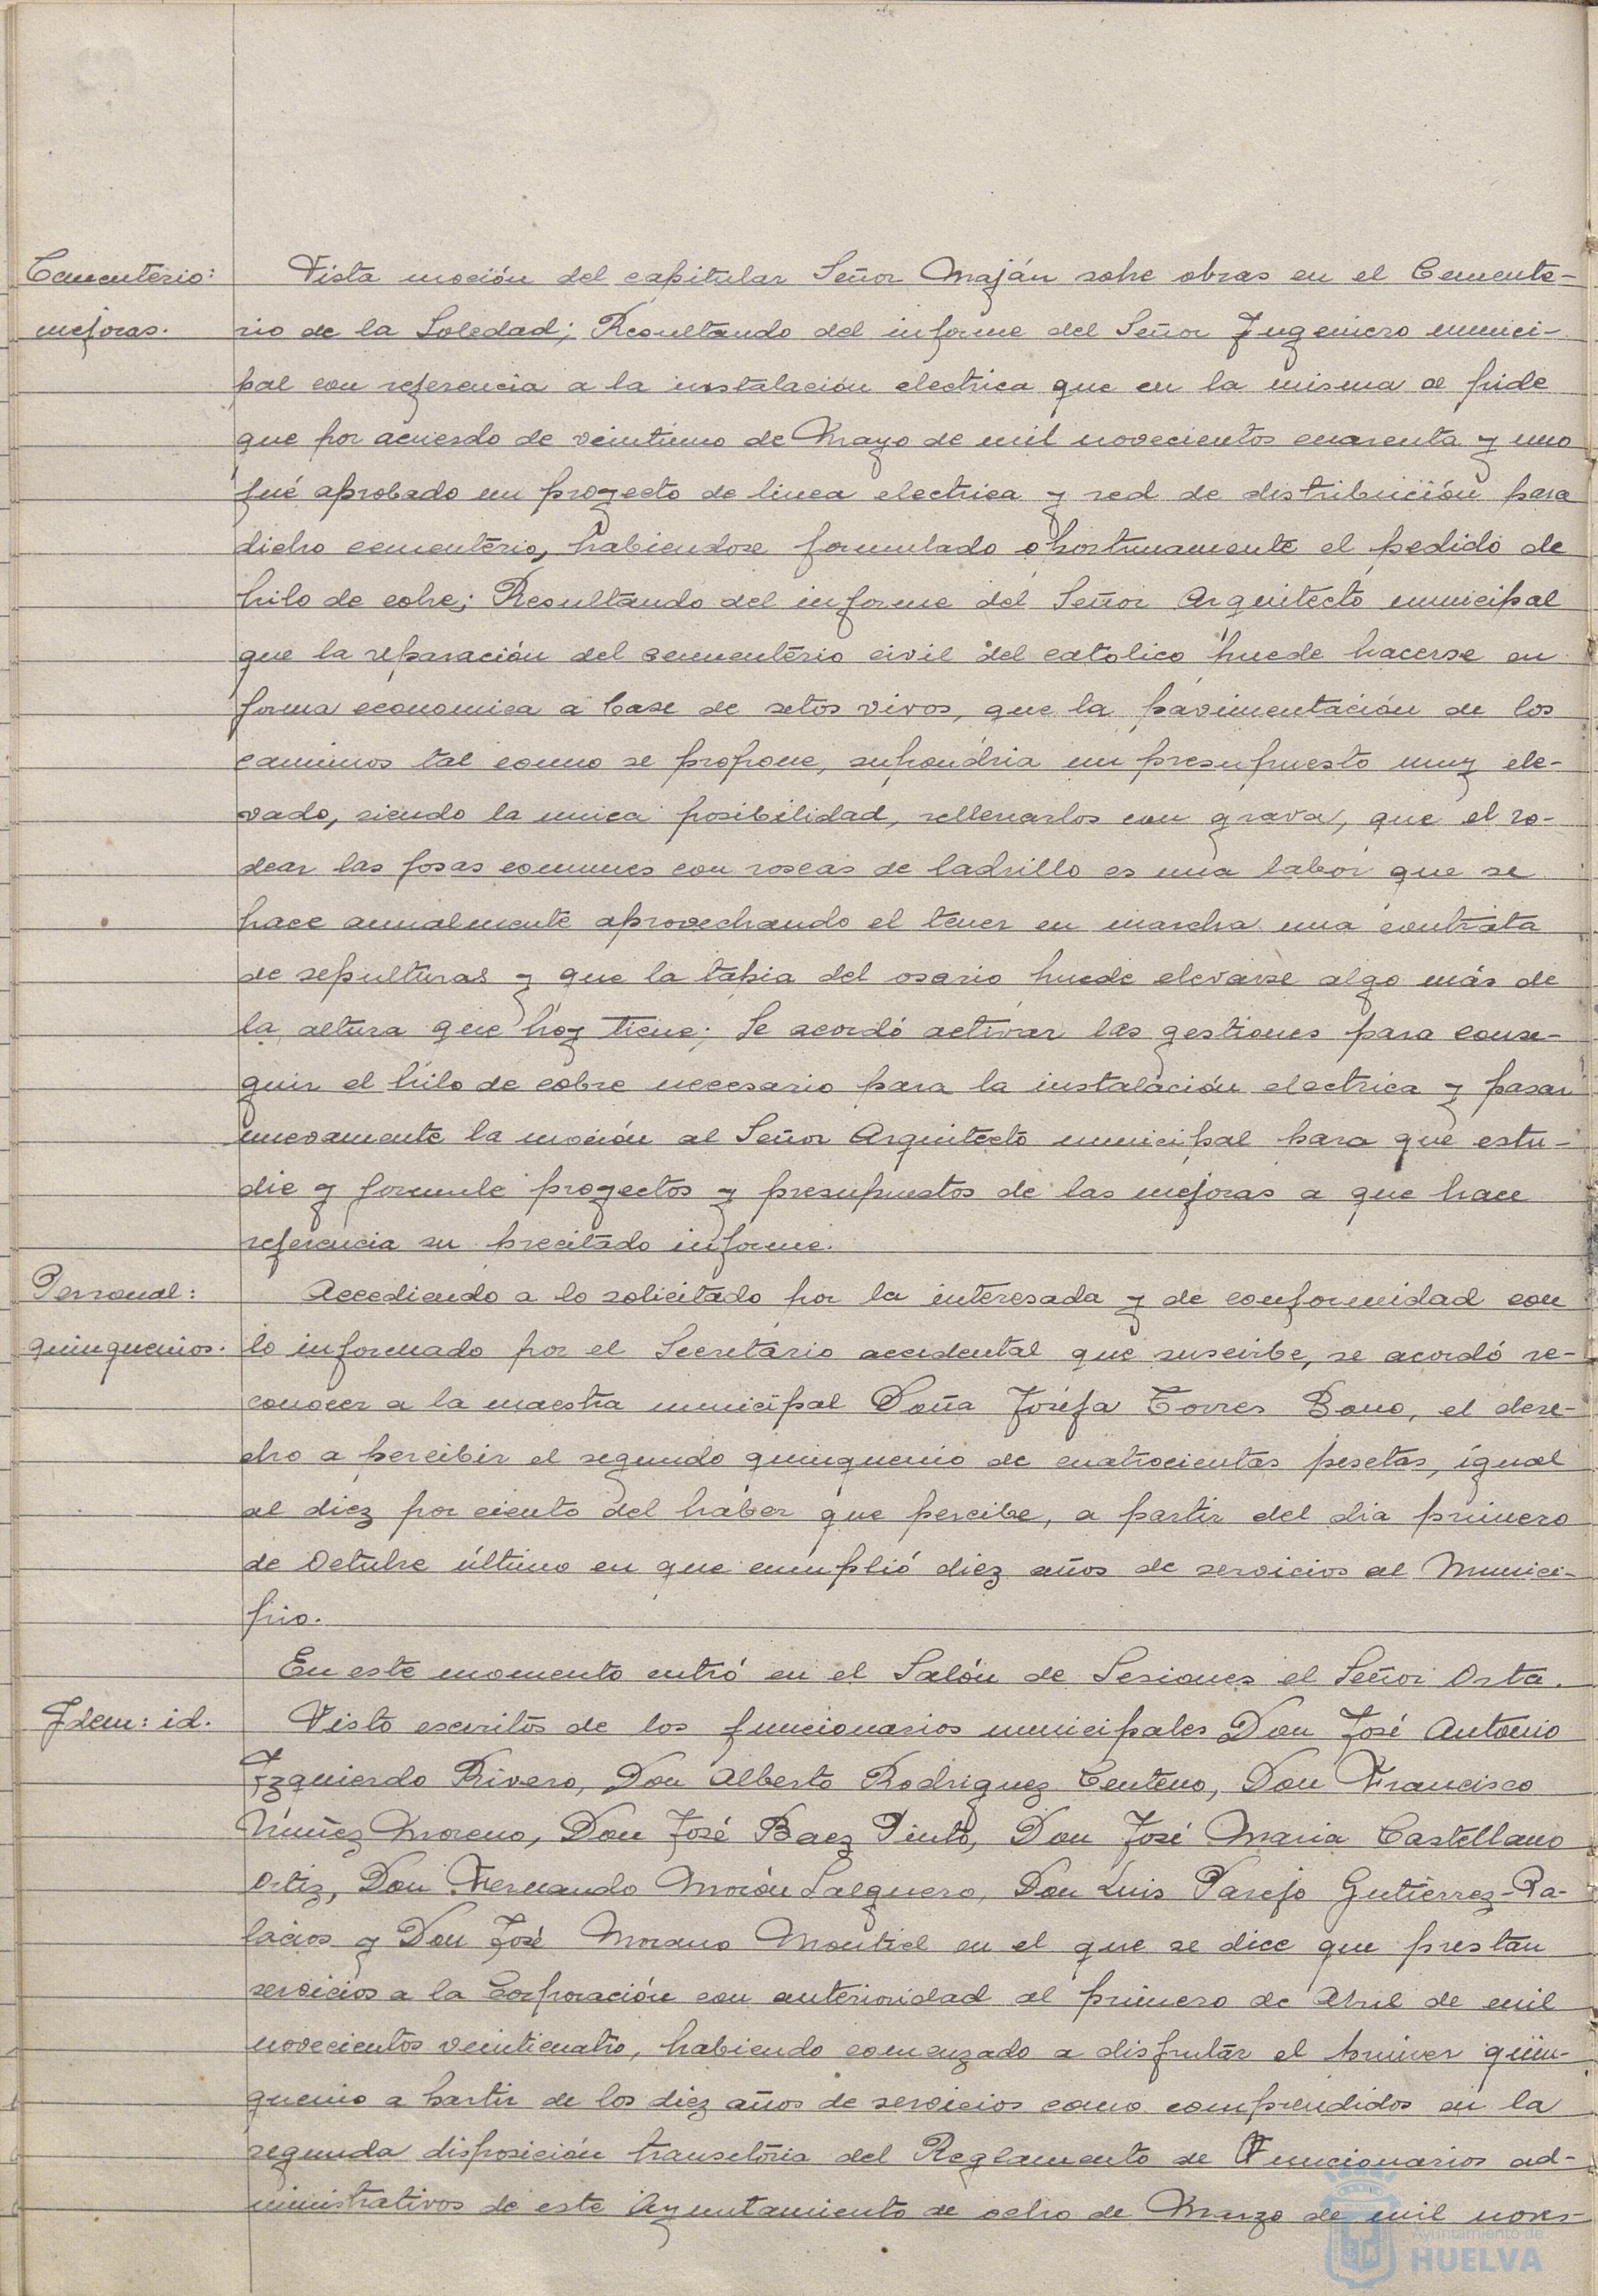 Cementerio:
mejoras.
Vista moción del capitular Señor Maján sobre obras en el Cemente-
rio de la Soledad; Resultando del informe del Señor Ingeniero munici-
pal con referencia a la instalación electrica que en la misma se pide
que por acuerdo de veintiuno de Mayo de mil novecientos cuarenta y uno
fué aprobado un proyecto de linea electrica y red de distribución para
dicho cementerio, habiendose formulado oportunamente el pedido de
hilo de cobre; Resultando del informe del Señor Arquitecto municipal
que la reparación del cementerio civil del catolico puede hacerse en
forma economica a base de setos vivos, que la pavimentación de los
caminos tal como se propone, supondria un presupuesto muy ele-
vado, siendo la unica posibilidad, rellenarlos con grava, que el ro-
dear las fosas comunes con roscas de ladrillo es una labor que se
hace anualmente aprovechando el tener en marcha una contrata
de sepulturas y que la tapia del osario puede elevarse algo más de
la altura que hoy tiene; Se acordó activar las gestiones para conse-
guir el hilo de cobre necesario para la instalación electrica y pasar
nuevamente la moción al Señor Arquitecto municipal para que estu-
die y formule proyectos y presupuestos de las mejoras a que hace
referencia su precitado informe.
Personal:
quinquenios.
Accediendo a lo solicitado por la interesada y de conformidad con
lo informado por el Secretario accidental que suscribe, se acordó re-
conocer a la maestra municipal Doña Josefa Torres Bono, el dere-
cho a percibir el segundo quinquenio de cuatrocientas pesetas, igual
al diez por ciento del haber que percibe, a partir del dia primero
de Octubre último en que cumplió diez años de servicios al Munici-
pio.
En este momento entró en el Salón de Sesiones el Señor Orta.
Idem: id.
Visto escritos de los funcionarios municipales Don José Antonio
Izquierdo Rivero, Don Alberto Rodriguez Centeno, Don Francisco
Núñez Moreno, Don José Baez Pinto, Don José Maria Castellano
Ortiz, Don Fernando Morón Salguero, Don Luis Parejo Gutierrez-Pa-
lacios y Don José Morano Montiel en el que se dice que prestan
servicios a la Corporación con anterioridad al primero de Abril de mil
novecientos veinticuatro, habiendo comenzado a disfrutar el primer quin-
quenio a partir de los diez años de servicios como comprendidos en la
segunda disposición transitoria del Reglamento de Funcionarios ad-
ministrativos de este Ayuntamiento de ocho de Marzo de mil nove-
Ayuntamiento de
HUELVA